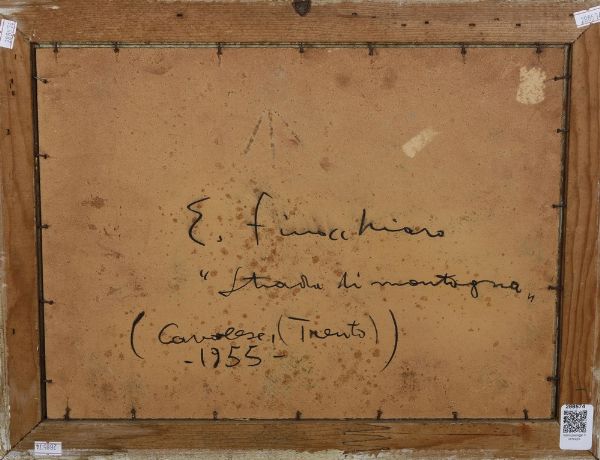 E. Finocchiaro
"Strada di montagna"
(Cavalese, (Trento))
-1955-
288574